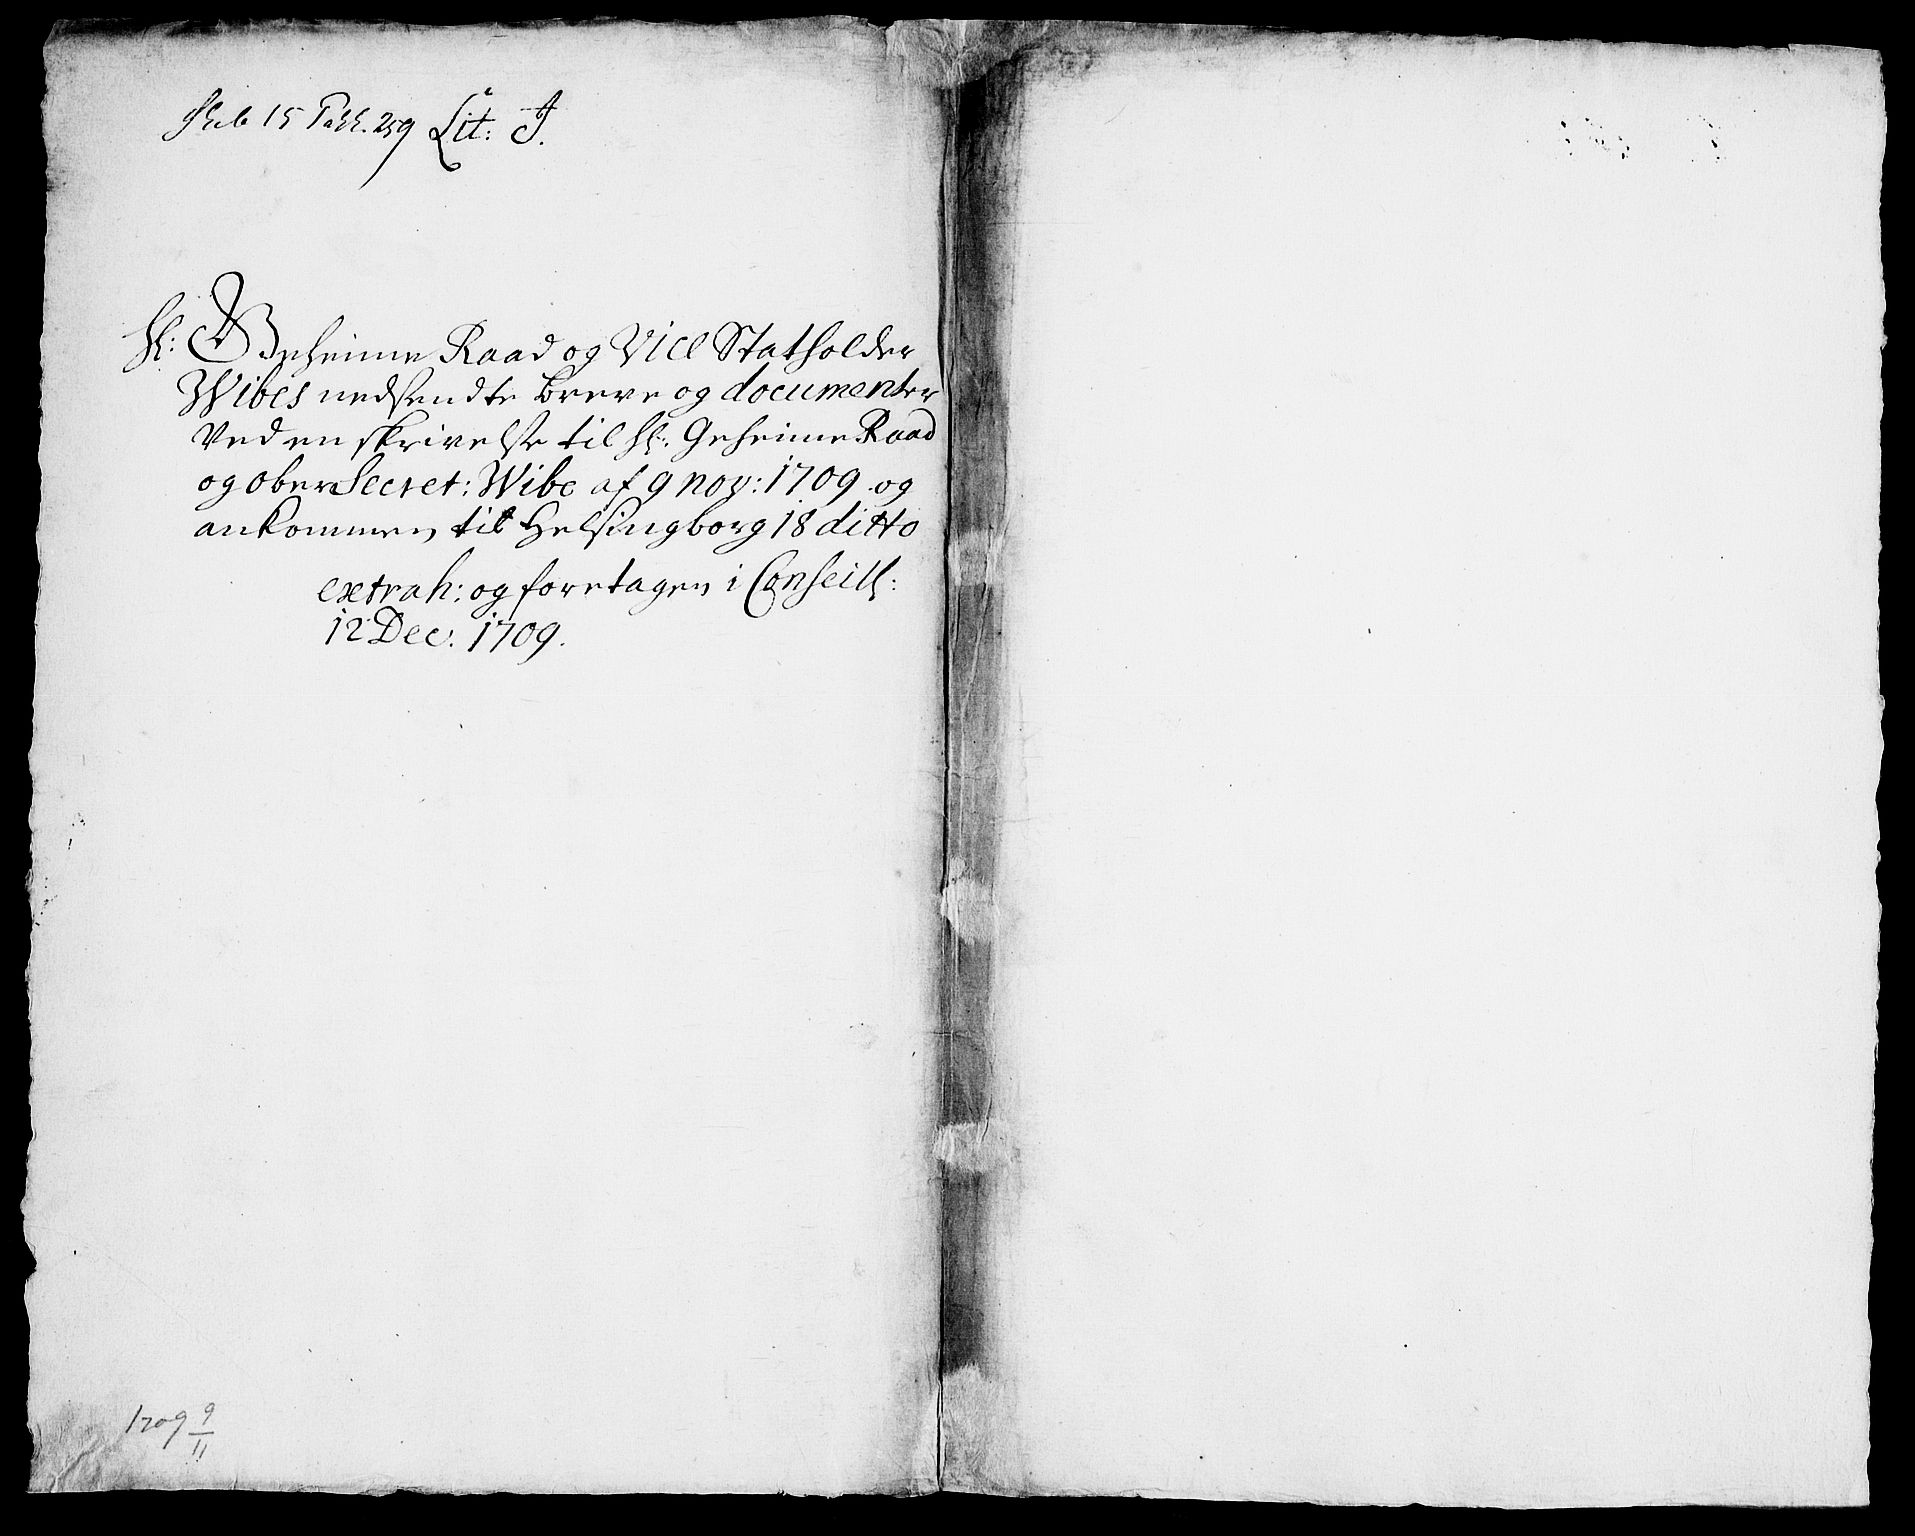 Skab 15 Pakk. 259 Lit: J.
Hr: Geheime Raad og Vice Statholder
Wibes nedsendte breve og documenter
Ved en skrivelse til Hr: Geheime Raad
og ober Secret: Wibe af 9 nov: 1709 og
ankommen til Helsingborg 18 ditto
extrah: og foretagen i Conseill:
12 Dec. 1709.
1709 9/11